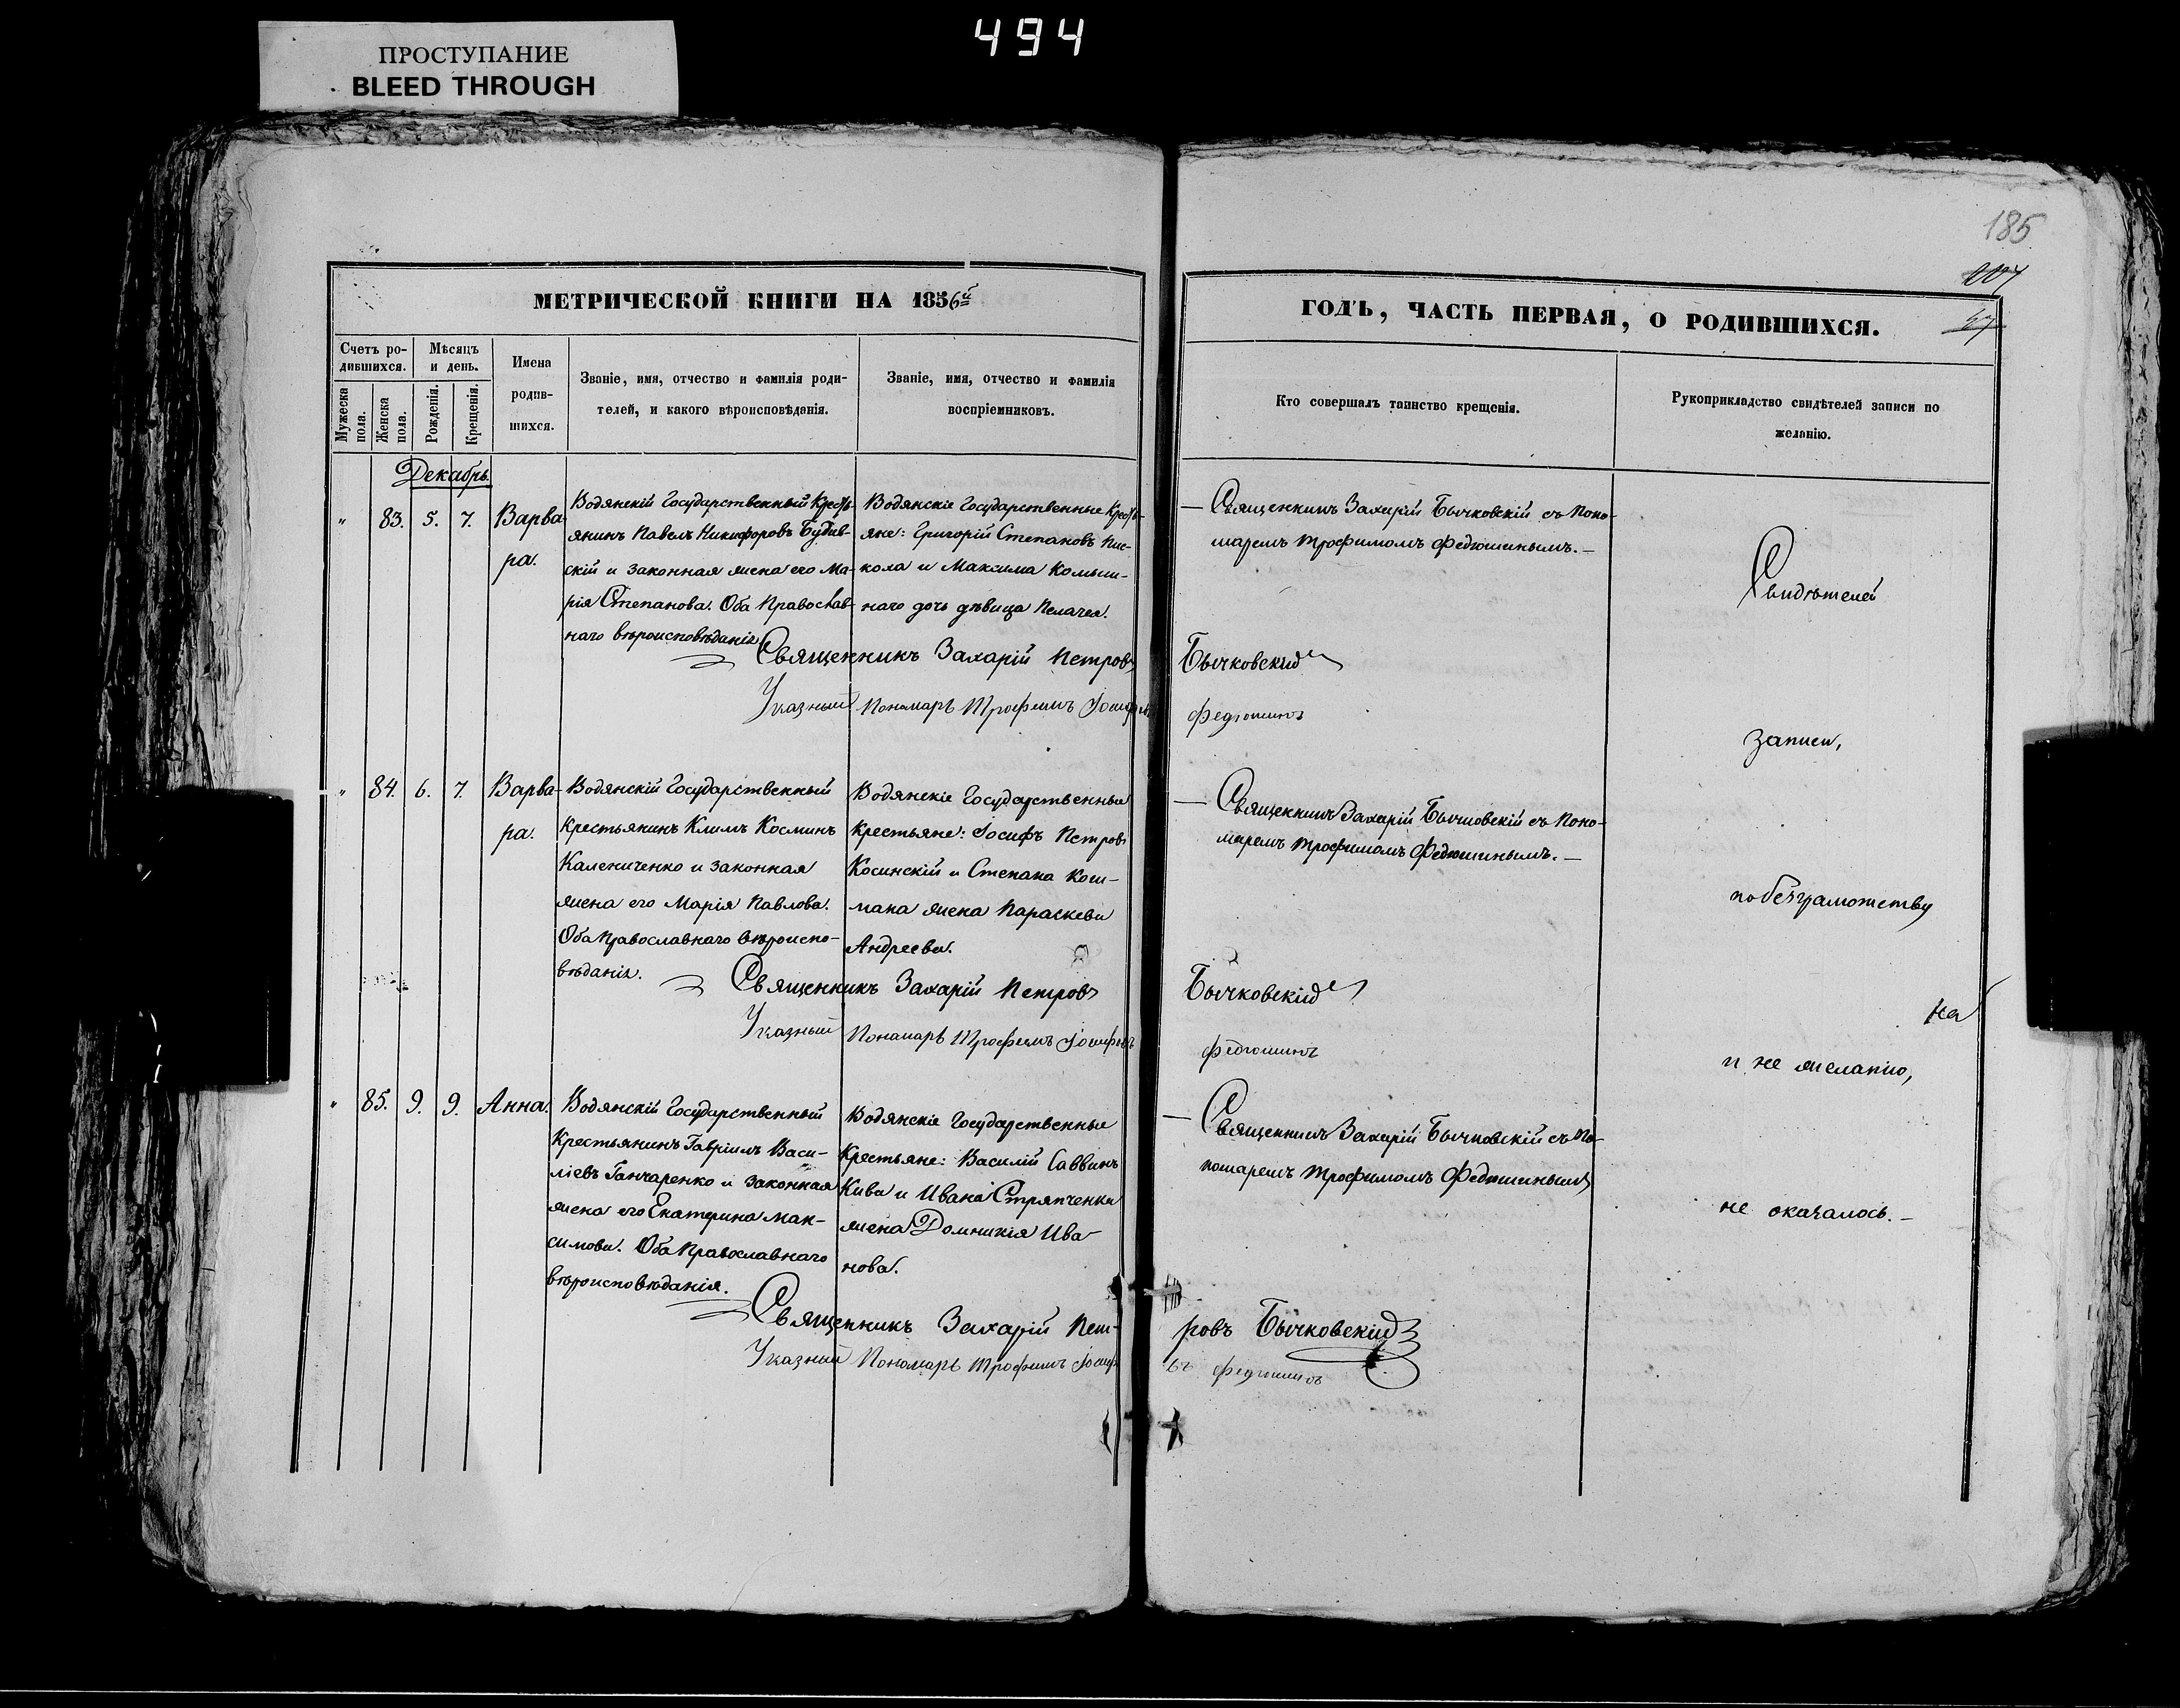 494
ПРОСТУПАНИЕ
BLEED THROUGH
185
МЕТРИЧЕСКОЙ КНИГИ НА 1856й
ГОДЪ, ЧАСТЬ ПЕРВАЯ, О РОДИВШИХСЯ.
Счетъ ро-
дившихся.
Мужеска пола.
Женска пола.
Мѣсяцъ
и день.
Рожденія.
Крещенія.
Имена
родив-
шихся.
Званіе, имя, отчество и фамилія роди-
телей, и какого вѣроисповѣданія.
Званіе, имя, отчество и фамилія
воспріемниковъ.
Кто совершалъ таинство крещенія.
Рукоприкладство свидѣтелей записи по
желанію.
Декабрь.
" 83. 5. 7. Варва-
ра.
Водянскій Государственный Кресть-
янинъ Павелъ Никифоровъ Будив-
скій и законная жена его Ма-
рія Степанова. Оба Православ-
наго вѣроисповѣданія.
Водянскіе Государственные Кресть-
яне: Григорій Степановъ Пис-
кола и Максима
наго дочь дѣвица Пелагея.
— Священникъ Захарій Бычковскій съ Поно-
маремъ Трофимомъ Федюшинымъ.—
Священникъ Захарій Петровъ Бычковскій
Указный Пономарь Трофимъ Іосифовъ Федюшинъ
" 84. 6. 7. Варва-
ра.
Водянскій Государственный
Крестьянинъ Климъ Косминъ
Калениченко и законная
жена его Марія Павлова.
Оба Православнаго вѣроиспо-
вѣданія.
Водянскіе Государственные
Крестьяне: Іосифъ Петровъ
Косинскій и Степана Кош-
мана жена Параскева
Андреева.
— Священникъ Захарій Бычковскій съ Поно-
маремъ Трофимомъ Федюшинымъ.—
Священникъ Захарій Петровъ Бычковскій
Указный Пономарь Трофимъ Іосифовъ Федюшинъ
" 85. 9. 9. Анна.
Водянскій Государственный
Крестьянинъ Гавріилъ Васи-
ліевъ Ганчаренко и законная
жена его Екатерина Мак-
симова. Оба Православнаго
вѣроисповѣданія.
Водянскіе Государственные
Крестьяне: Василій Саввинъ
Кива и Ивана Стряпченка
жена Домникія Ива-
нова.
— Священникъ Захарій Бычковскій съ По-
номаремъ Трофимомъ Федюшинымъ
Священникъ Захарій Пет-
ровъ Бычковскій
Указный Пономарь Трофимъ Іосифо
въ Федюшинъ
Свидѣтелей
записи,
по безграмотству
на
и не желанію,
не оказалось.—